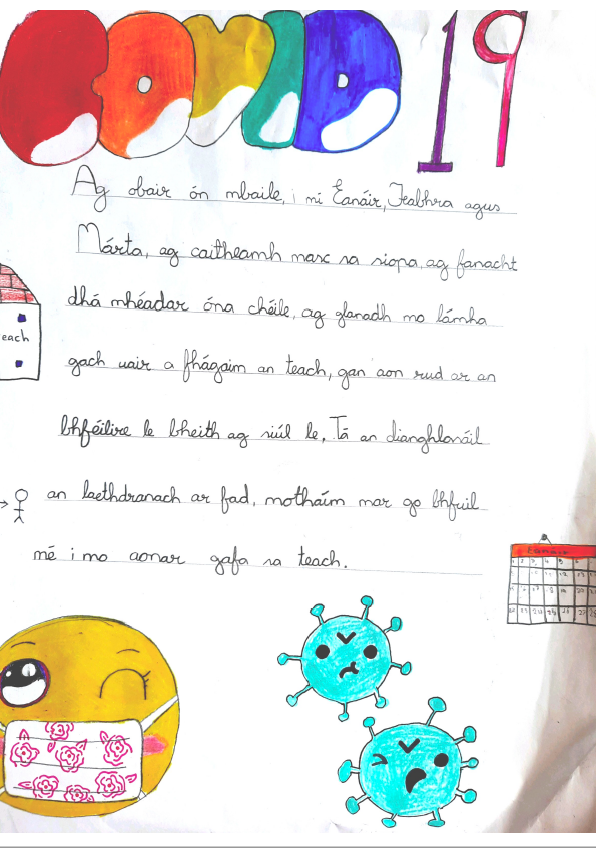 COVID 19
Ag obair ón mbaile, i mí Eanáir, Feabhra agus
Márta, ag caitheamh masc sa siopa, ag fanacht
dhá mhéadar óna chéile, ag glanadh mo lámha
each
gach uair a fhágaim an teach, gan aon rud ar an
bhféilire le bheith ag siúl le, Tá an dianghlasáil
an laethdranach ar fad, mothaím mar go bhfuil
mé i mo aonar gafa sa teach.
Eanáir